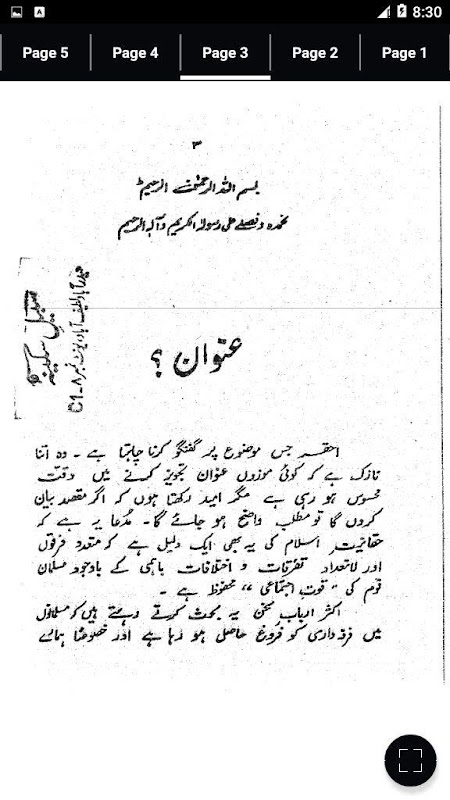 8:30
Page 5
Page 4
Page 3
Page 2
Page 1
۳
بسم اللہ الرحمٰن الرحیم
نحمدہ و نصلے علی رسولہ الکریم و آلہ الرحیم
سبیلِ سکینہ
حیدرآباد لطیف آباد، یونٹ نمبر ۸ - C1
عنوان ؟
احقر جس موضوع پر گفتگو کرنا چاہتا ہے ۔ وہ اتنا
نازک ہے کہ کوئی موزوں عنوان تجویز کرنے میں وقت
محسوس ہو رہی ہے مگر امید رکھتا ہوں کہ اگر مقصد بیان
کروں گا تو مطلب واضح ہو جائے گا ۔ مُدعا یہ ہے کہ
حقانیتِ اسلام کی یہ بھی ایک دلیل ہے کہ متعدد فرقوں
اور لاتعداد تفرقات و اختلافات باہمی کے باوجود مسلمان
قوم کی "قوتِ اجتماعی" محفوظ ہے ۔
اکثر اربابِ سخن یہ بحث کرتے رہتے ہیں کہ مسلمانوں
میں فرقہ داری کو فروغ حاصل ہو رہا ہے اور خصوصًا ہمارے